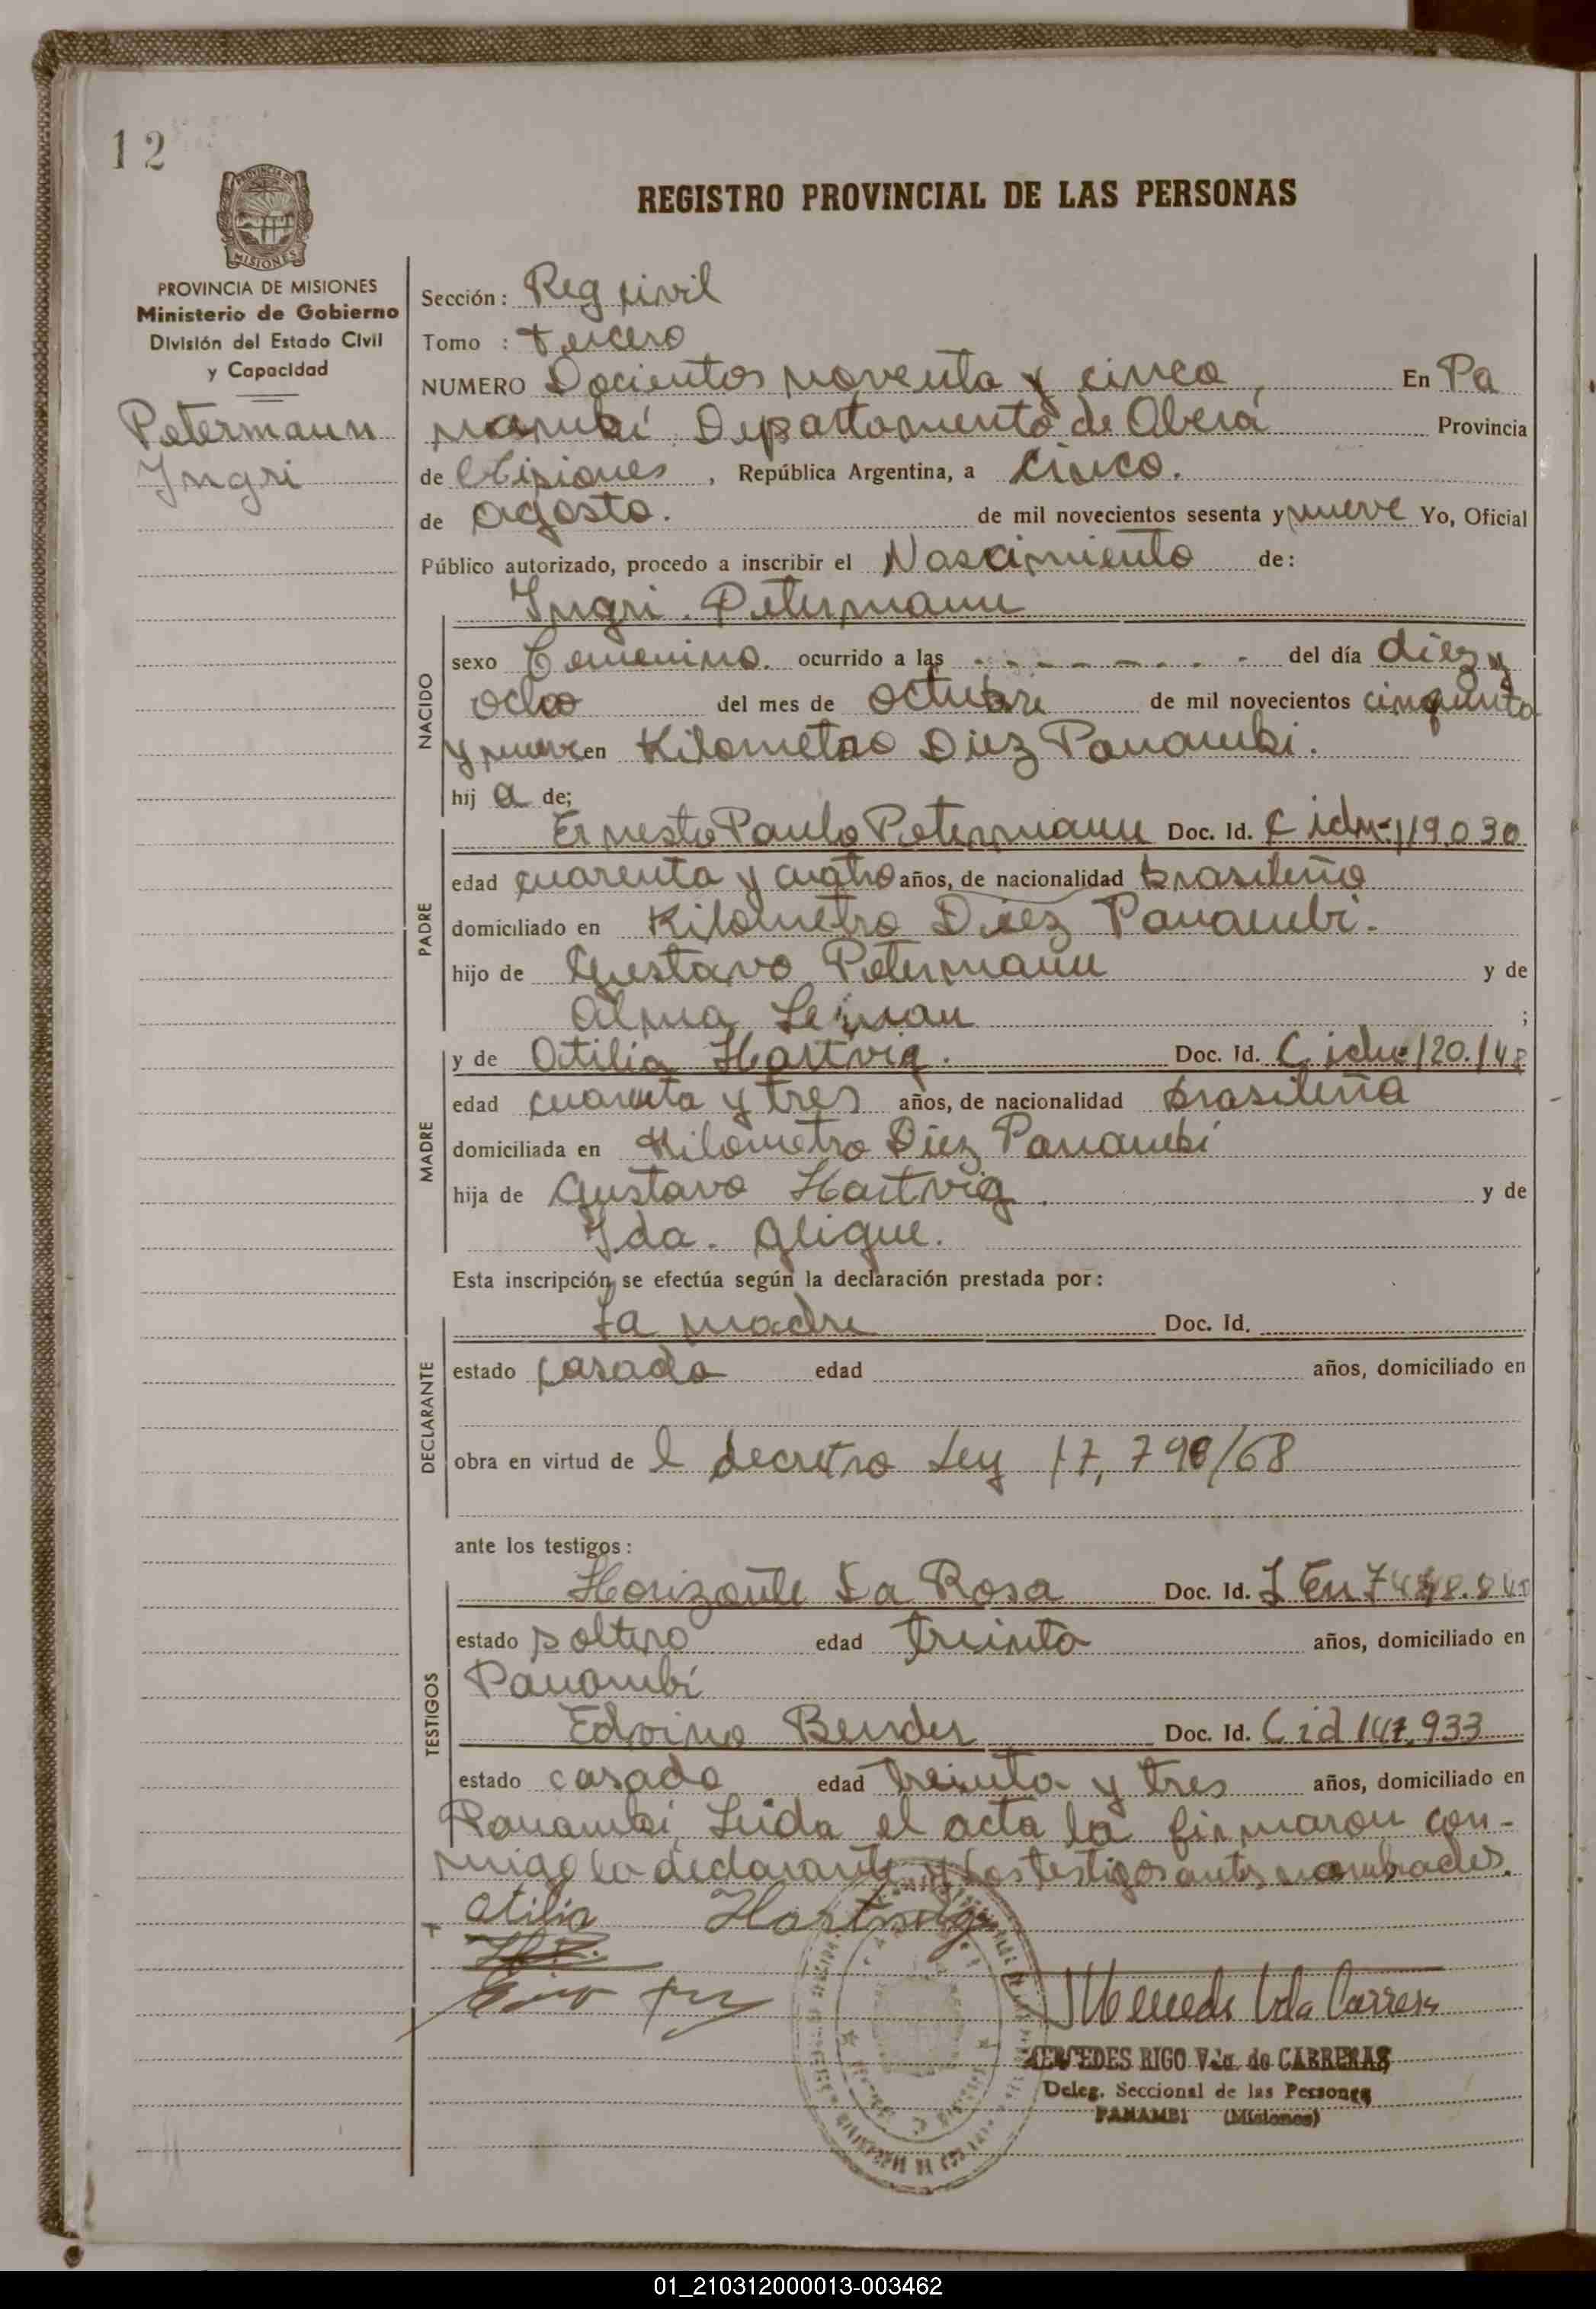 12
PROVINCIA DE MISIONES
Ministerio de Gobierno
División del Estado Civil
y Capacidad
Petermann
Ingri
REGISTRO PROVINCIAL DE LAS PERSONAS
Sección: Reg civil
Tomo : tercero
NUMERO Docientos noventa y cinco, En Pa
nambí Departamento de Oberá Provincia
de Misiones, República Argentina, a cinco.
de agosto. de mil novecientos sesenta y nueve Yo, Oficial
Público autorizado, procedo a inscribir el Nascimiento de:
Ingri. Petermann
NACIDO
sexo Femenino. ocurrido a las - - - - - - - - del día diez y
ocho del mes de octubre de mil novecientos cinquenta
y nueve en Kilometro Diez Panambi.
hij a de;
PADRE
Ernesto Paulo Petermann Doc. Id. C idm 119.030
edad cuarenta y cuatro años, de nacionalidad brasileño
domiciliado en Kilometro Diez Panambi.
hijo de Gustavo Petermann y de
Alma Leman ;
MADRE
y de Otilia Hartvig. Doc. Id. C idm 120.148
edad cuarenta y tres años, de nacionalidad brasileña
domiciliada en Kilometro Diez Panambí
hija de Gustavo Hartvig. y de
Ida. Glique.
Esta inscripción se efectúa según la declaración prestada por:
DECLARANTE
La madre Doc. Id.
estado casada edad años, domiciliado en
obra en virtud de l decretro Ley 17,790/68
ante los testigos:
TESTIGOS
Horizonte La Rosa Doc. Id. L En
estado soltero edad treinta años, domiciliado en
Panambí
Edvino Bender Doc. Id. C id 147.933
estado casado edad treinta y tres años, domiciliado en
Panambí, Leida el acta la firmaron con-
migo la declarante y los testigos antes nombrados.
Otilia Hartvig
MERCEDES RIGO Vda. de CARRERAS
Deleg. Seccional de las Personas
PANAMBI (Misiones)
01_210312000013-003462